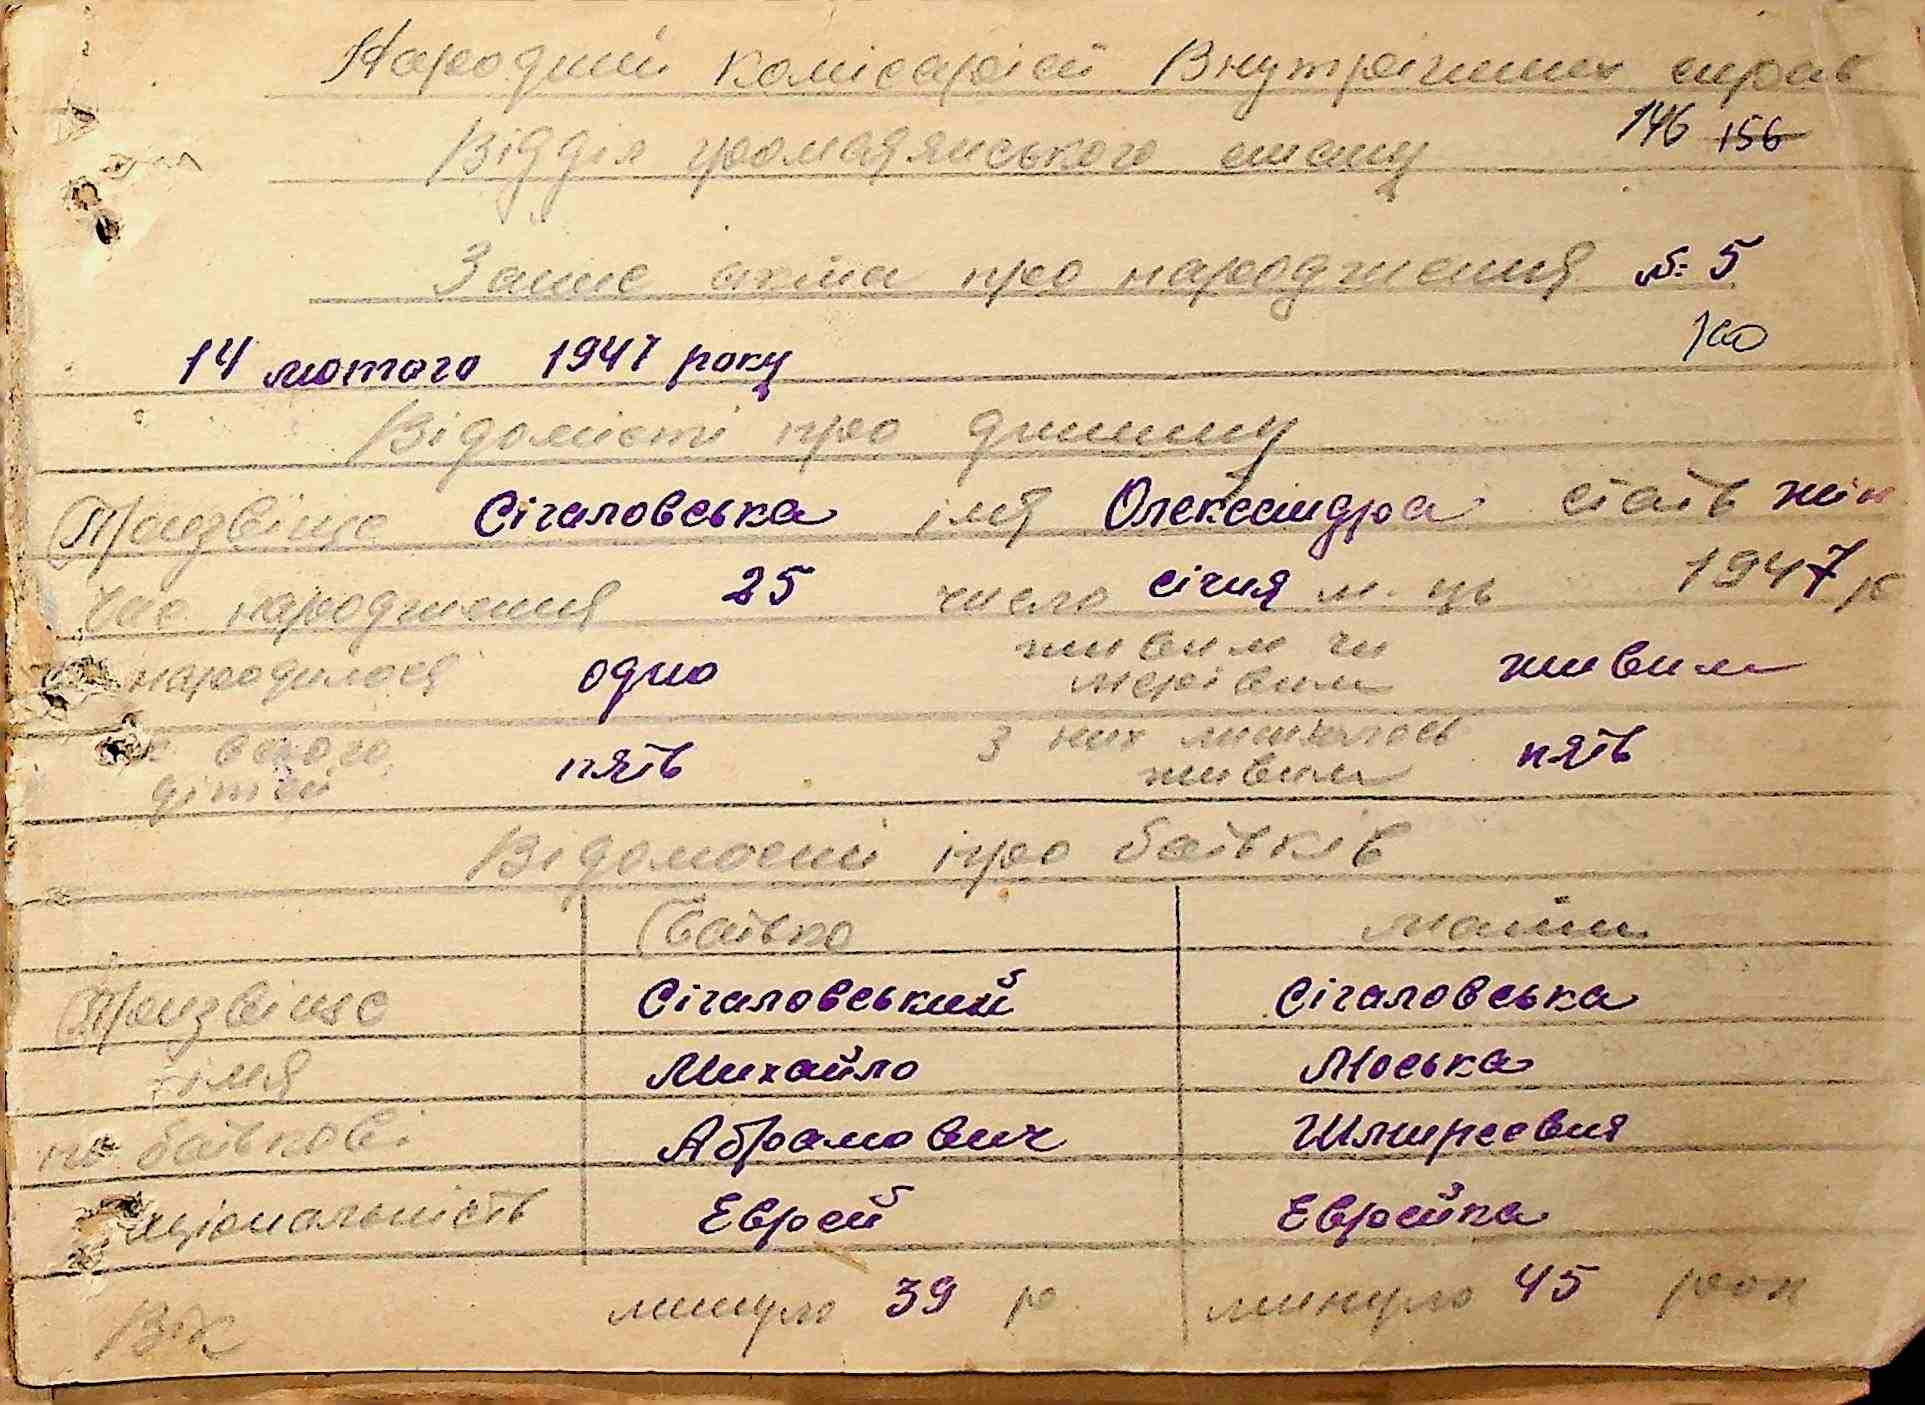 Народний комісаріат Внутрішних справ
Відділ громадянського стану 146 156
Запис акта про народження № 5
14 лютого 1947 року 160
Відомості про дитину
Прізвіще Сігаловська імя Олександра стать жін
Час народження 25 число січня м-ць 1947 р
народилося одно живим чи мертвим живим
всього дітей пять з них лишилось живим пять
Відомості про батьків
Батько мати
Прізвіще Сігаловський Сігаловська
імя Михайло Моська
по батькові Абрамович
Національність Еврей Еврейка
Вік минуло 39 р минуло 45 рок